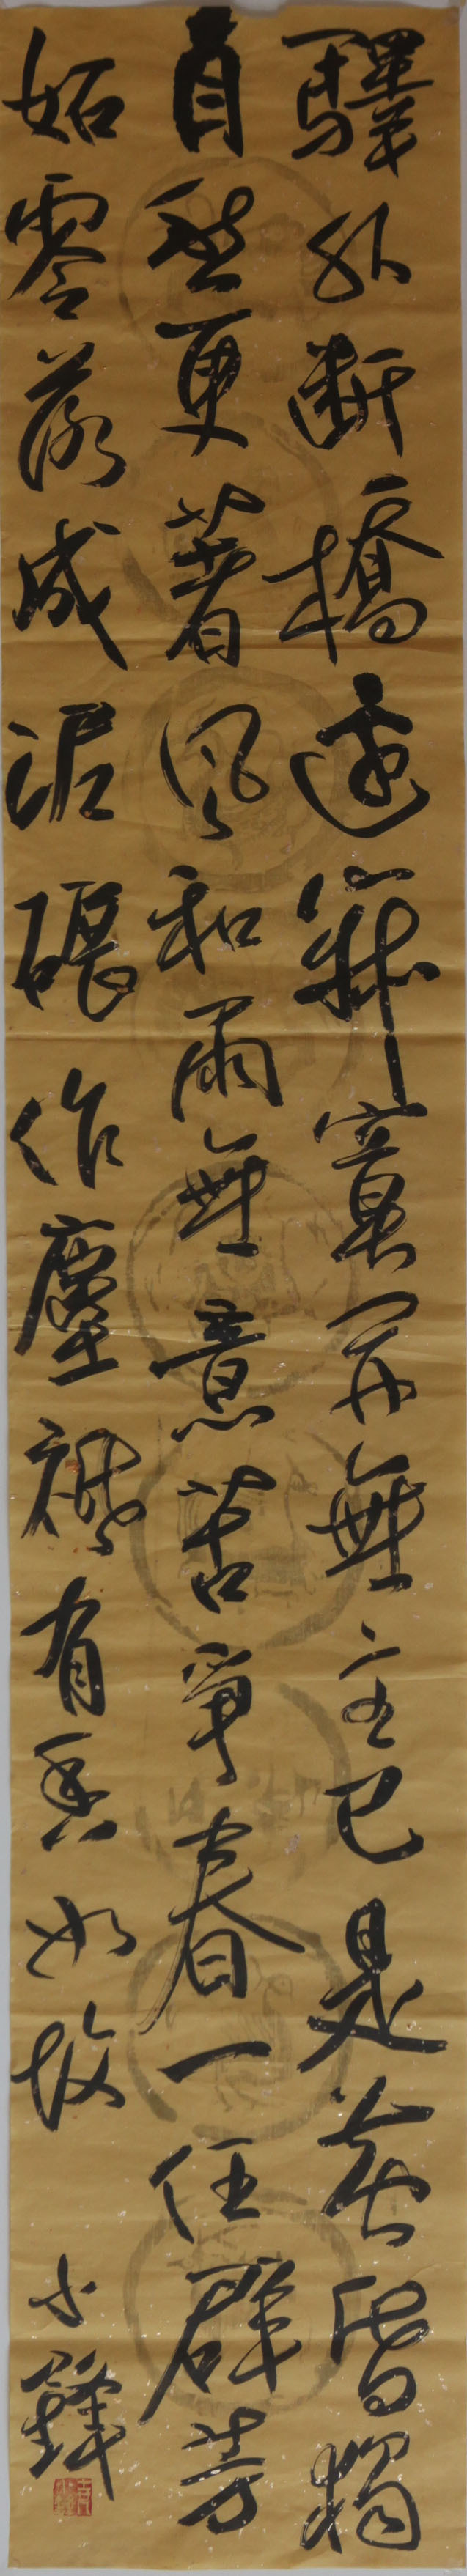 驛外断橋邊寂寞開無主已是黄昏獨
自愁更著風和雨無意苦争春一任群芳
妬零落成泥碾作塵祇有香如故
小鋒